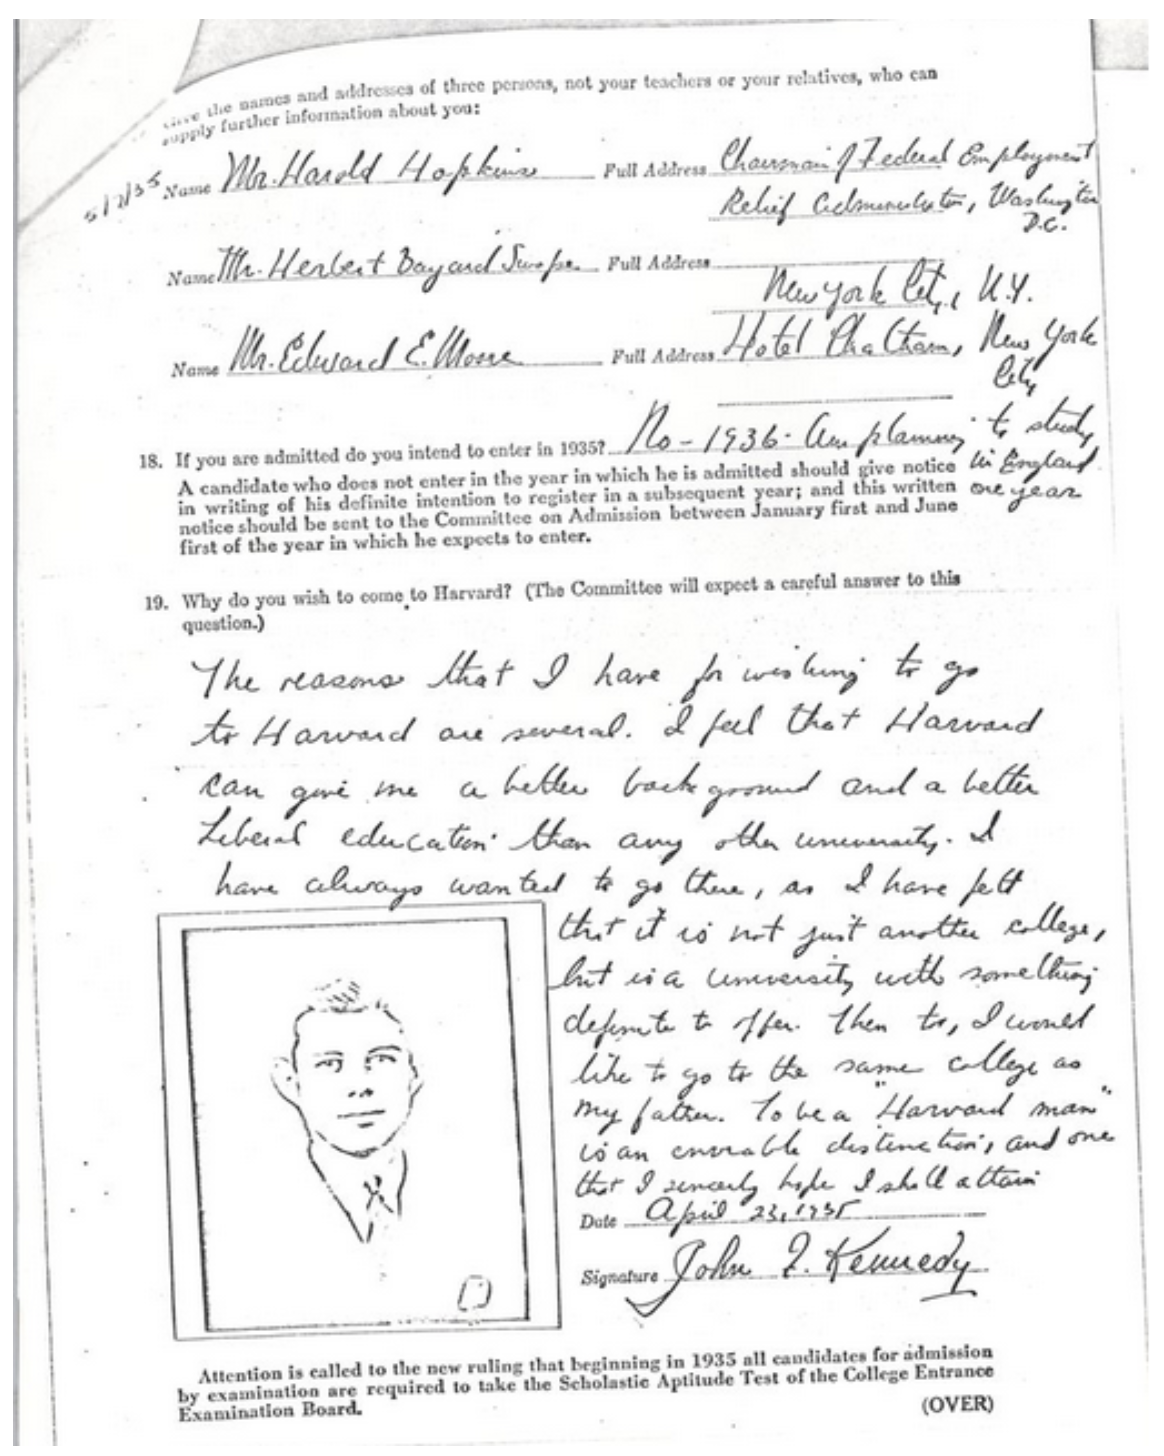 Give the names and addresses of three persons, not your teachers or your relatives, who can
supply further information about you:
5/2/35
Name Mr. Harold Hopkins Full Address Chairman of Federal Employment
Relief Administration, Washington
D.C.
Name Mr. Herbert Bayard Swope Full Address
New York City, N.Y.
Name Mr. Edward E. Moore Full Address Hotel Chatham, New York
City
18. If you are admitted do you intend to enter in 1935? No - 1936 - Am planning to study
in England
one year
A candidate who does not enter in the year in which he is admitted should give notice
in writing of his definite intention to register in a subsequent year; and this written
notice should be sent to the Committee on Admission between January first and June
first of the year in which he expects to enter.
19. Why do you wish to come to Harvard? (The Committee will expect a careful answer to this
question.)
The reasons that I have for wishing to go
to Harvard are several. I feel that Harvard
can give me a better background and a better
liberal education than any other university. I
have always wanted to go there, as I have felt
that it is not just another college,
but is a university with something
definite to offer. Then to, I would
like to go to the same college as
my father. To be a "Harvard man"
is an enviable distinction, and one
that I sincerely hope I shall attain
Date April 23, 1935
Signature John F. Kennedy
Attention is called to the new ruling that beginning in 1935 all candidates for admission
by examination are required to take the Scholastic Aptitude Test of the College Entrance
Examination Board.
(OVER)